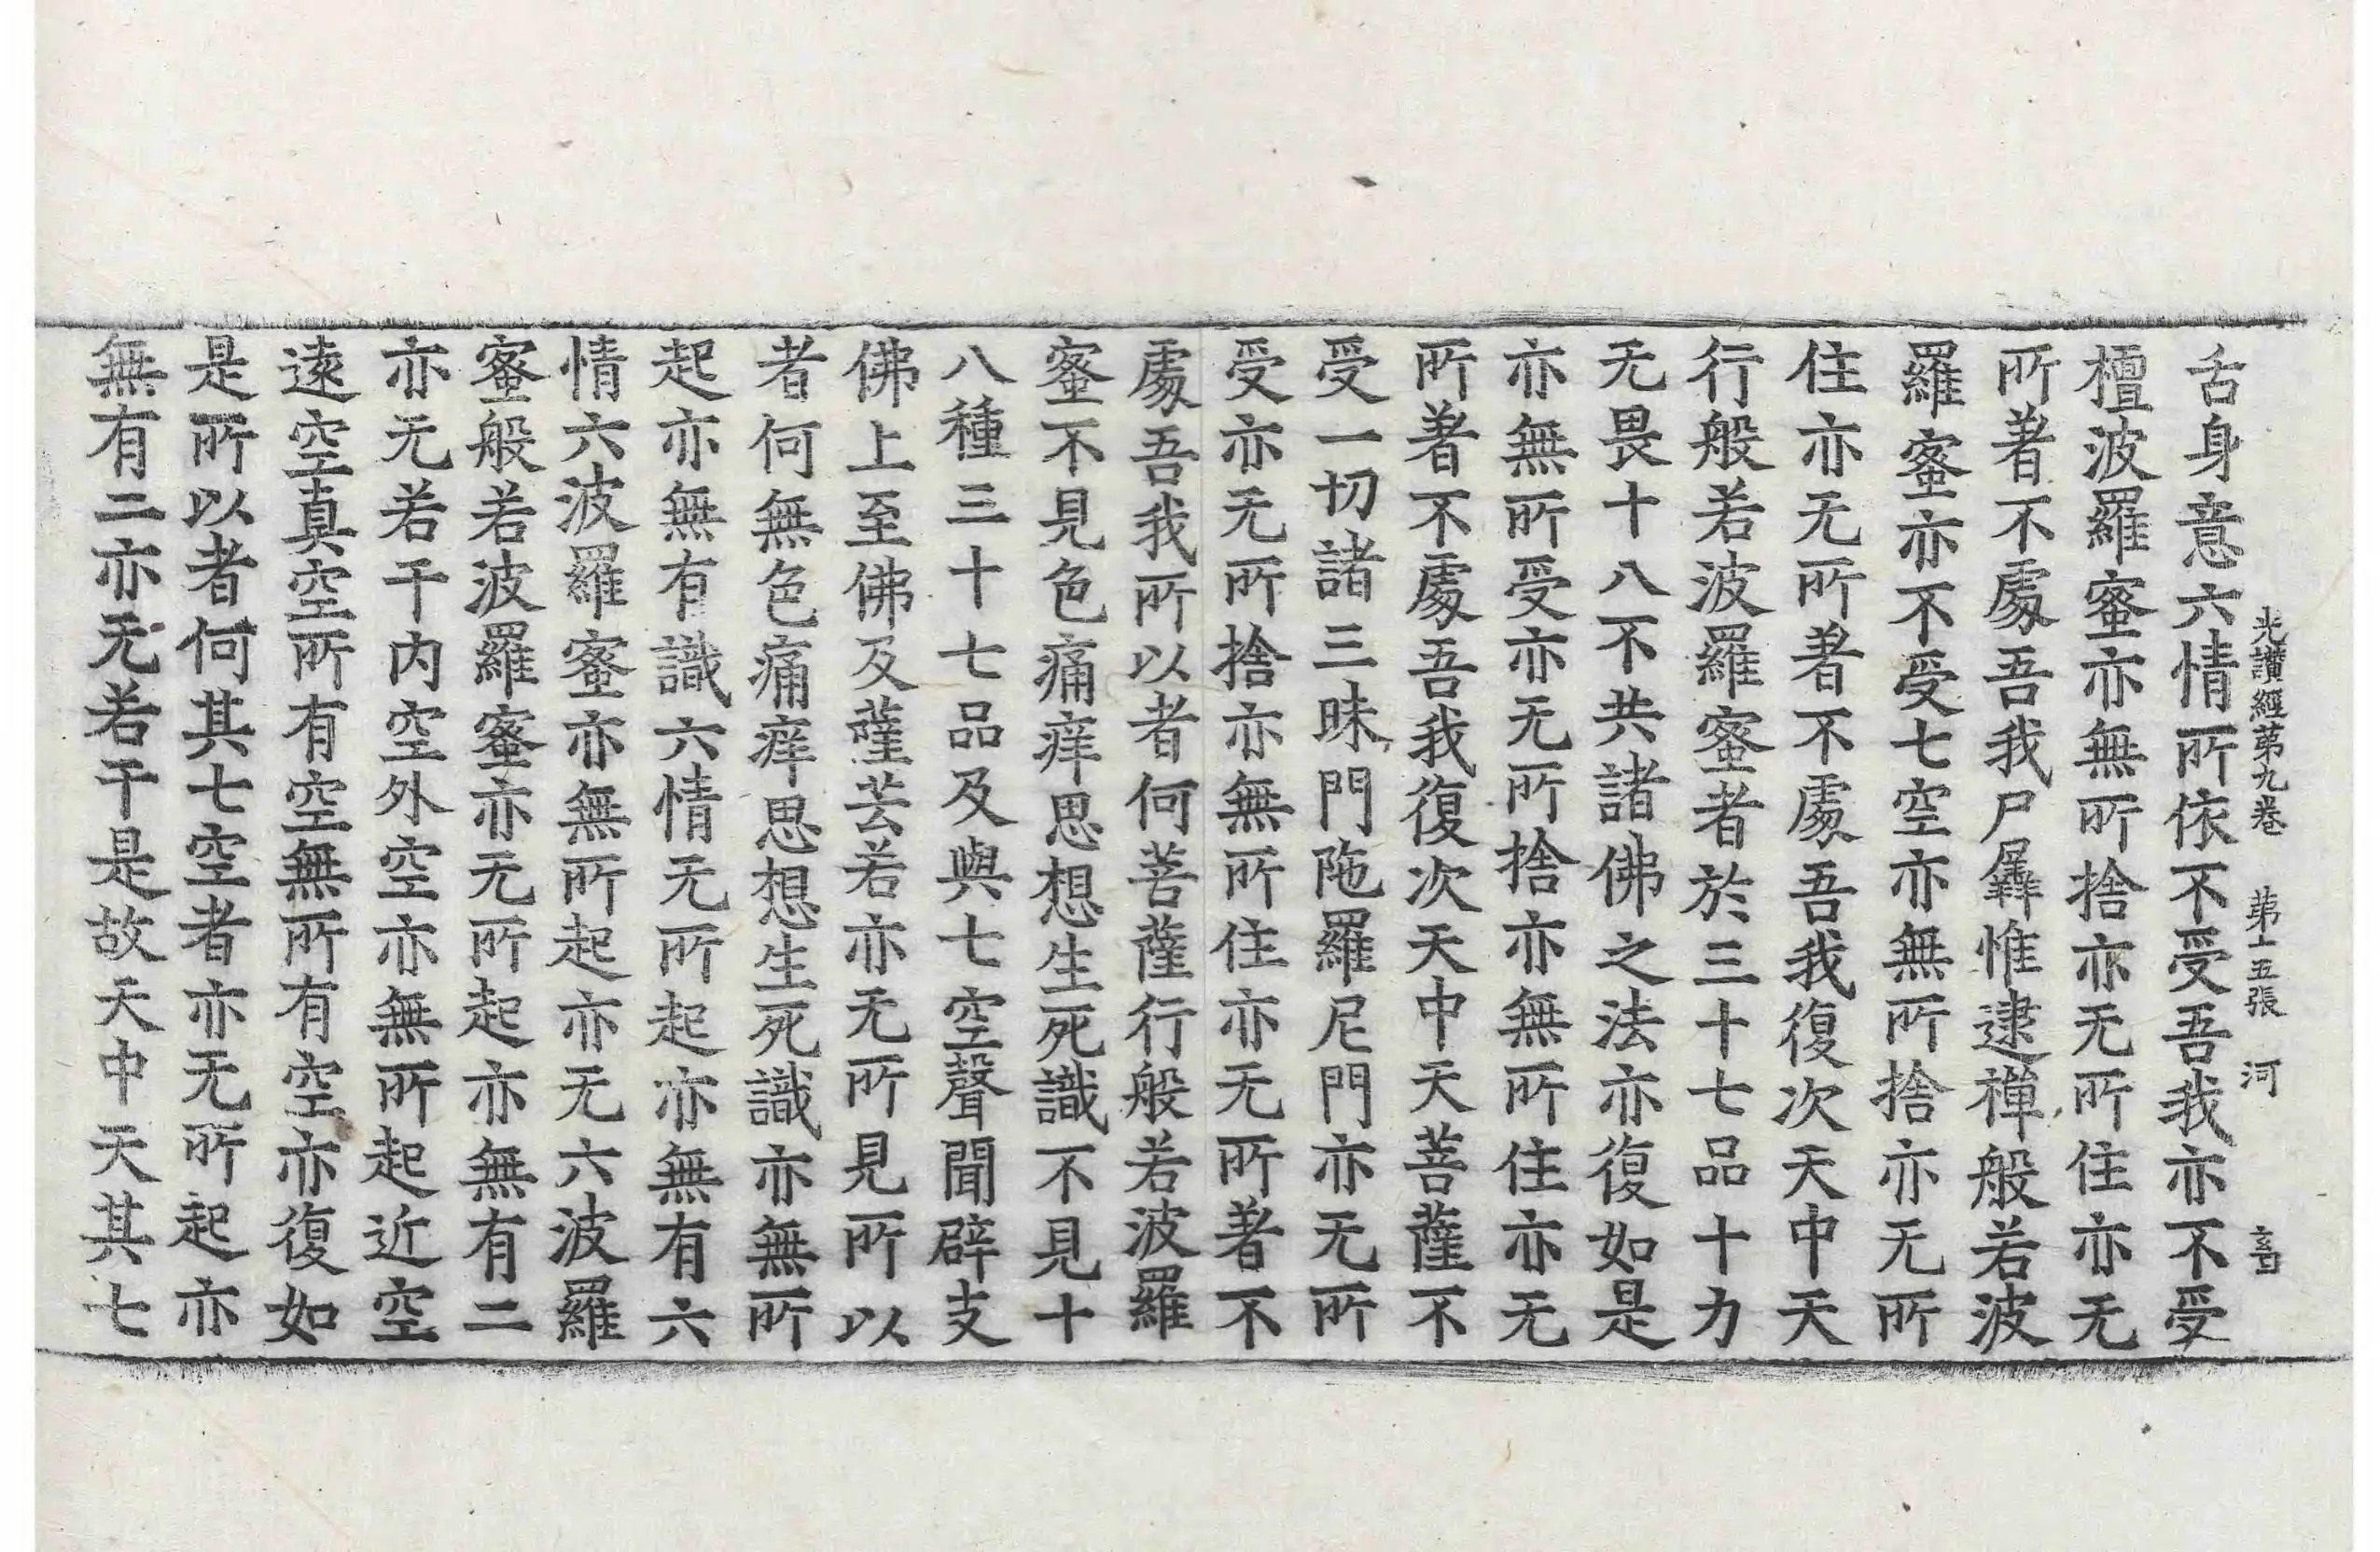 光讃經第九卷 第十五張 河
舌身意六情所依不受吾我亦不受
檀波羅蜜亦無所捨亦无所住亦无
所著不處吾我尸羼惟逮禪般若波
羅蜜亦不受七空亦無所捨亦无所
住亦无所著不處吾我復次天中天
行般若波羅蜜者於三十七品十力
无畏十八不共諸佛之法亦復如是
亦無所受亦无所捨亦無所住亦无
所著不處吾我復次天中天菩薩不
受一切諸三昧門陁羅尼門亦无所
受亦无所捨亦無所住亦无所著不
處吾我所以者何菩薩行般若波羅
蜜不見色痛痒思想生死識不見十
八種三十七品及與七空聲聞辟支
佛上至佛及薩芸若亦无所見所以
者何無色痛痒思想生死識亦無所
起亦無有識六情无所起亦無有六
情六波羅蜜亦無所起亦无六波羅
蜜般若波羅蜜亦无所起亦無有二
亦无若干内空外空亦無所起近空
遠空真空所有空無所有空亦復如
是所以者何其七空者亦无所起亦
無有二亦无若干是故天中天其七